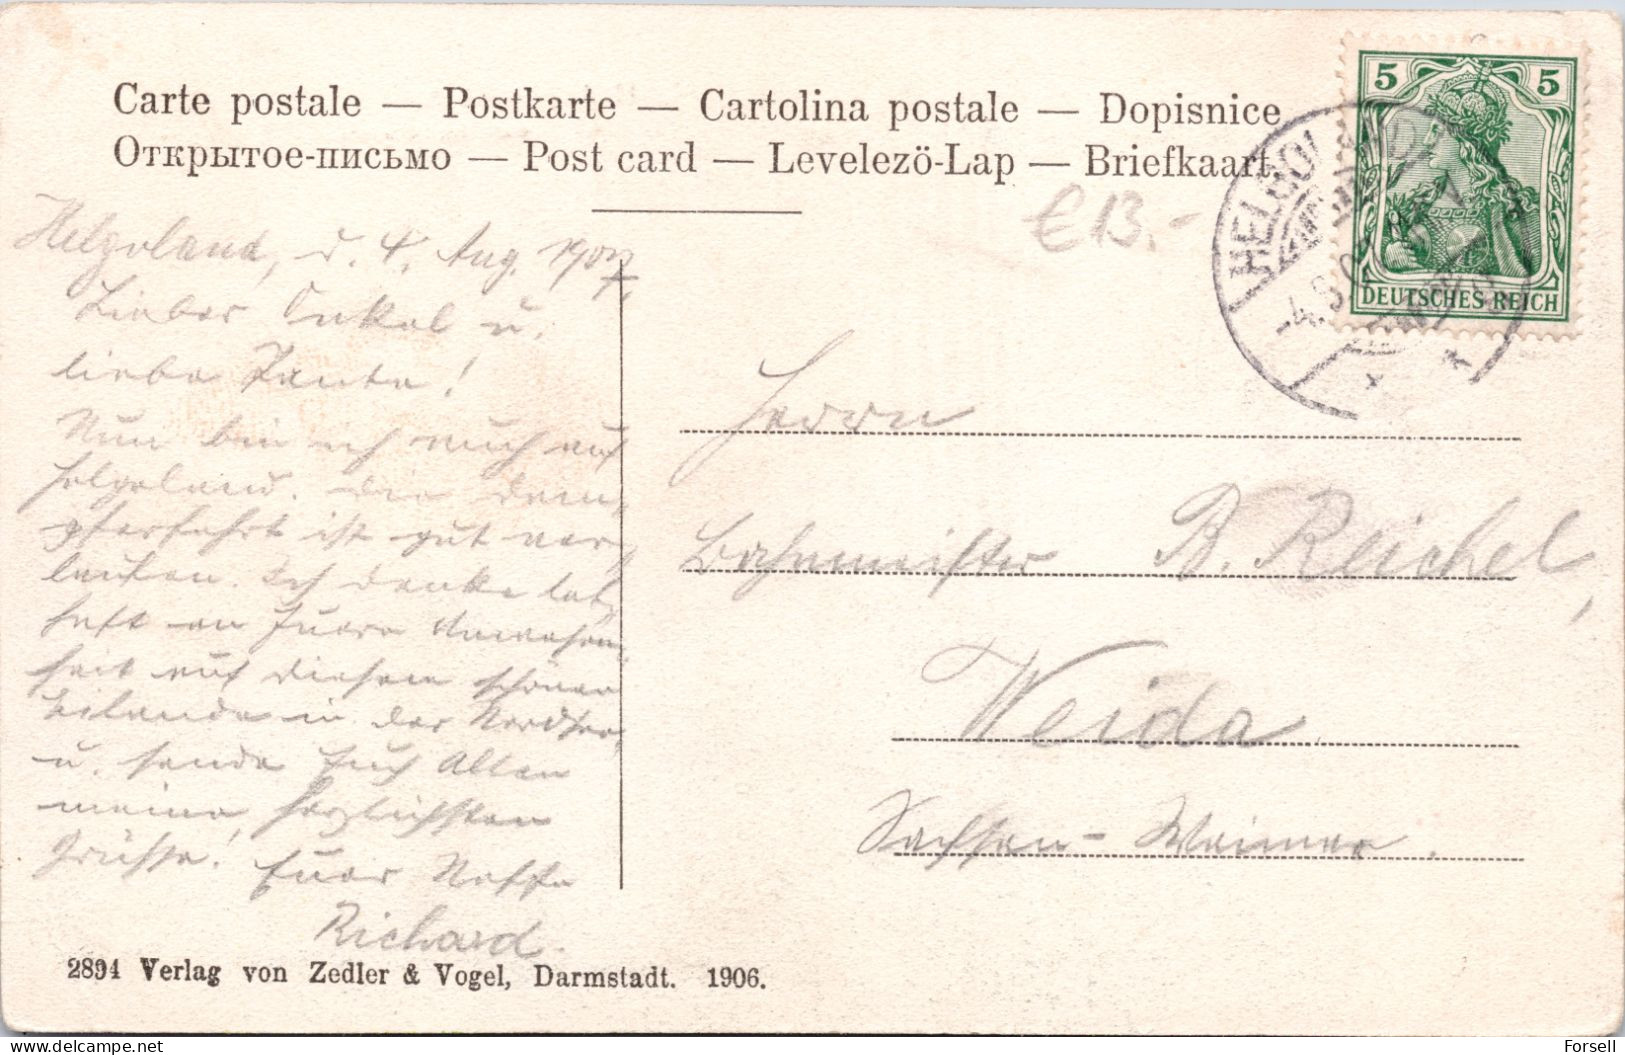 Carte postale — Postkarte — Cartolina postale — Dopisnice
Открытое-письмо — Post card — Levelező-Lap — Briefkaart
5 5
DEUTSCHES REICH
HELGOLAND
€13.-
Helgoland, d. 4. Aug. 1907.
Lieber Onkel u.
liebe Tante!
Nun bin ich auch auf
Helgoland. Die Dam-
pferfahrt ist gut ver-
laufen. Ich denke leb-
haft an Euere Anwesen-
heit auf diesem schönen
Eilande in der Nordsee
u. sende Euch Allen
meine herzlichsten
Grüsse! Euer Neffe
Richard.
Herrn
Bahnmeister B. Reichel,
Weida
Sachsen-Weimar.
2894 Verlag von Zedler & Vogel, Darmstadt. 1906.
delcampe.net
Forsell